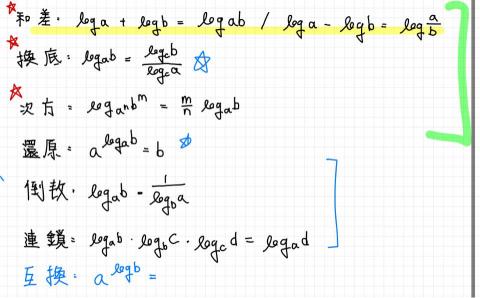 和差: log a + log b = log ab / log a - log b = log a/b
換底: logₐb = log_c b / log_c a
次方: log_aⁿ b^m = m/n logₐb
還原: a^logₐb = b
倒敉: logₐb = 1/log_b a
連鎖: logₐb · log_b c · log_c d = logₐd
互換: a^log b =